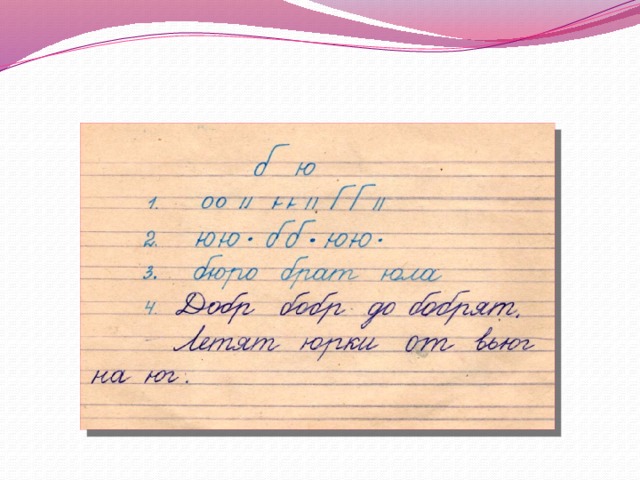 б ю
1. оо ıı ɩ-ɩ- ıı Г Г ıı
2. юю · бб · юю ·
3. бюро брат юла
4. Добр бобр до бобрят.
Летят юрки от вьюг
на юг.